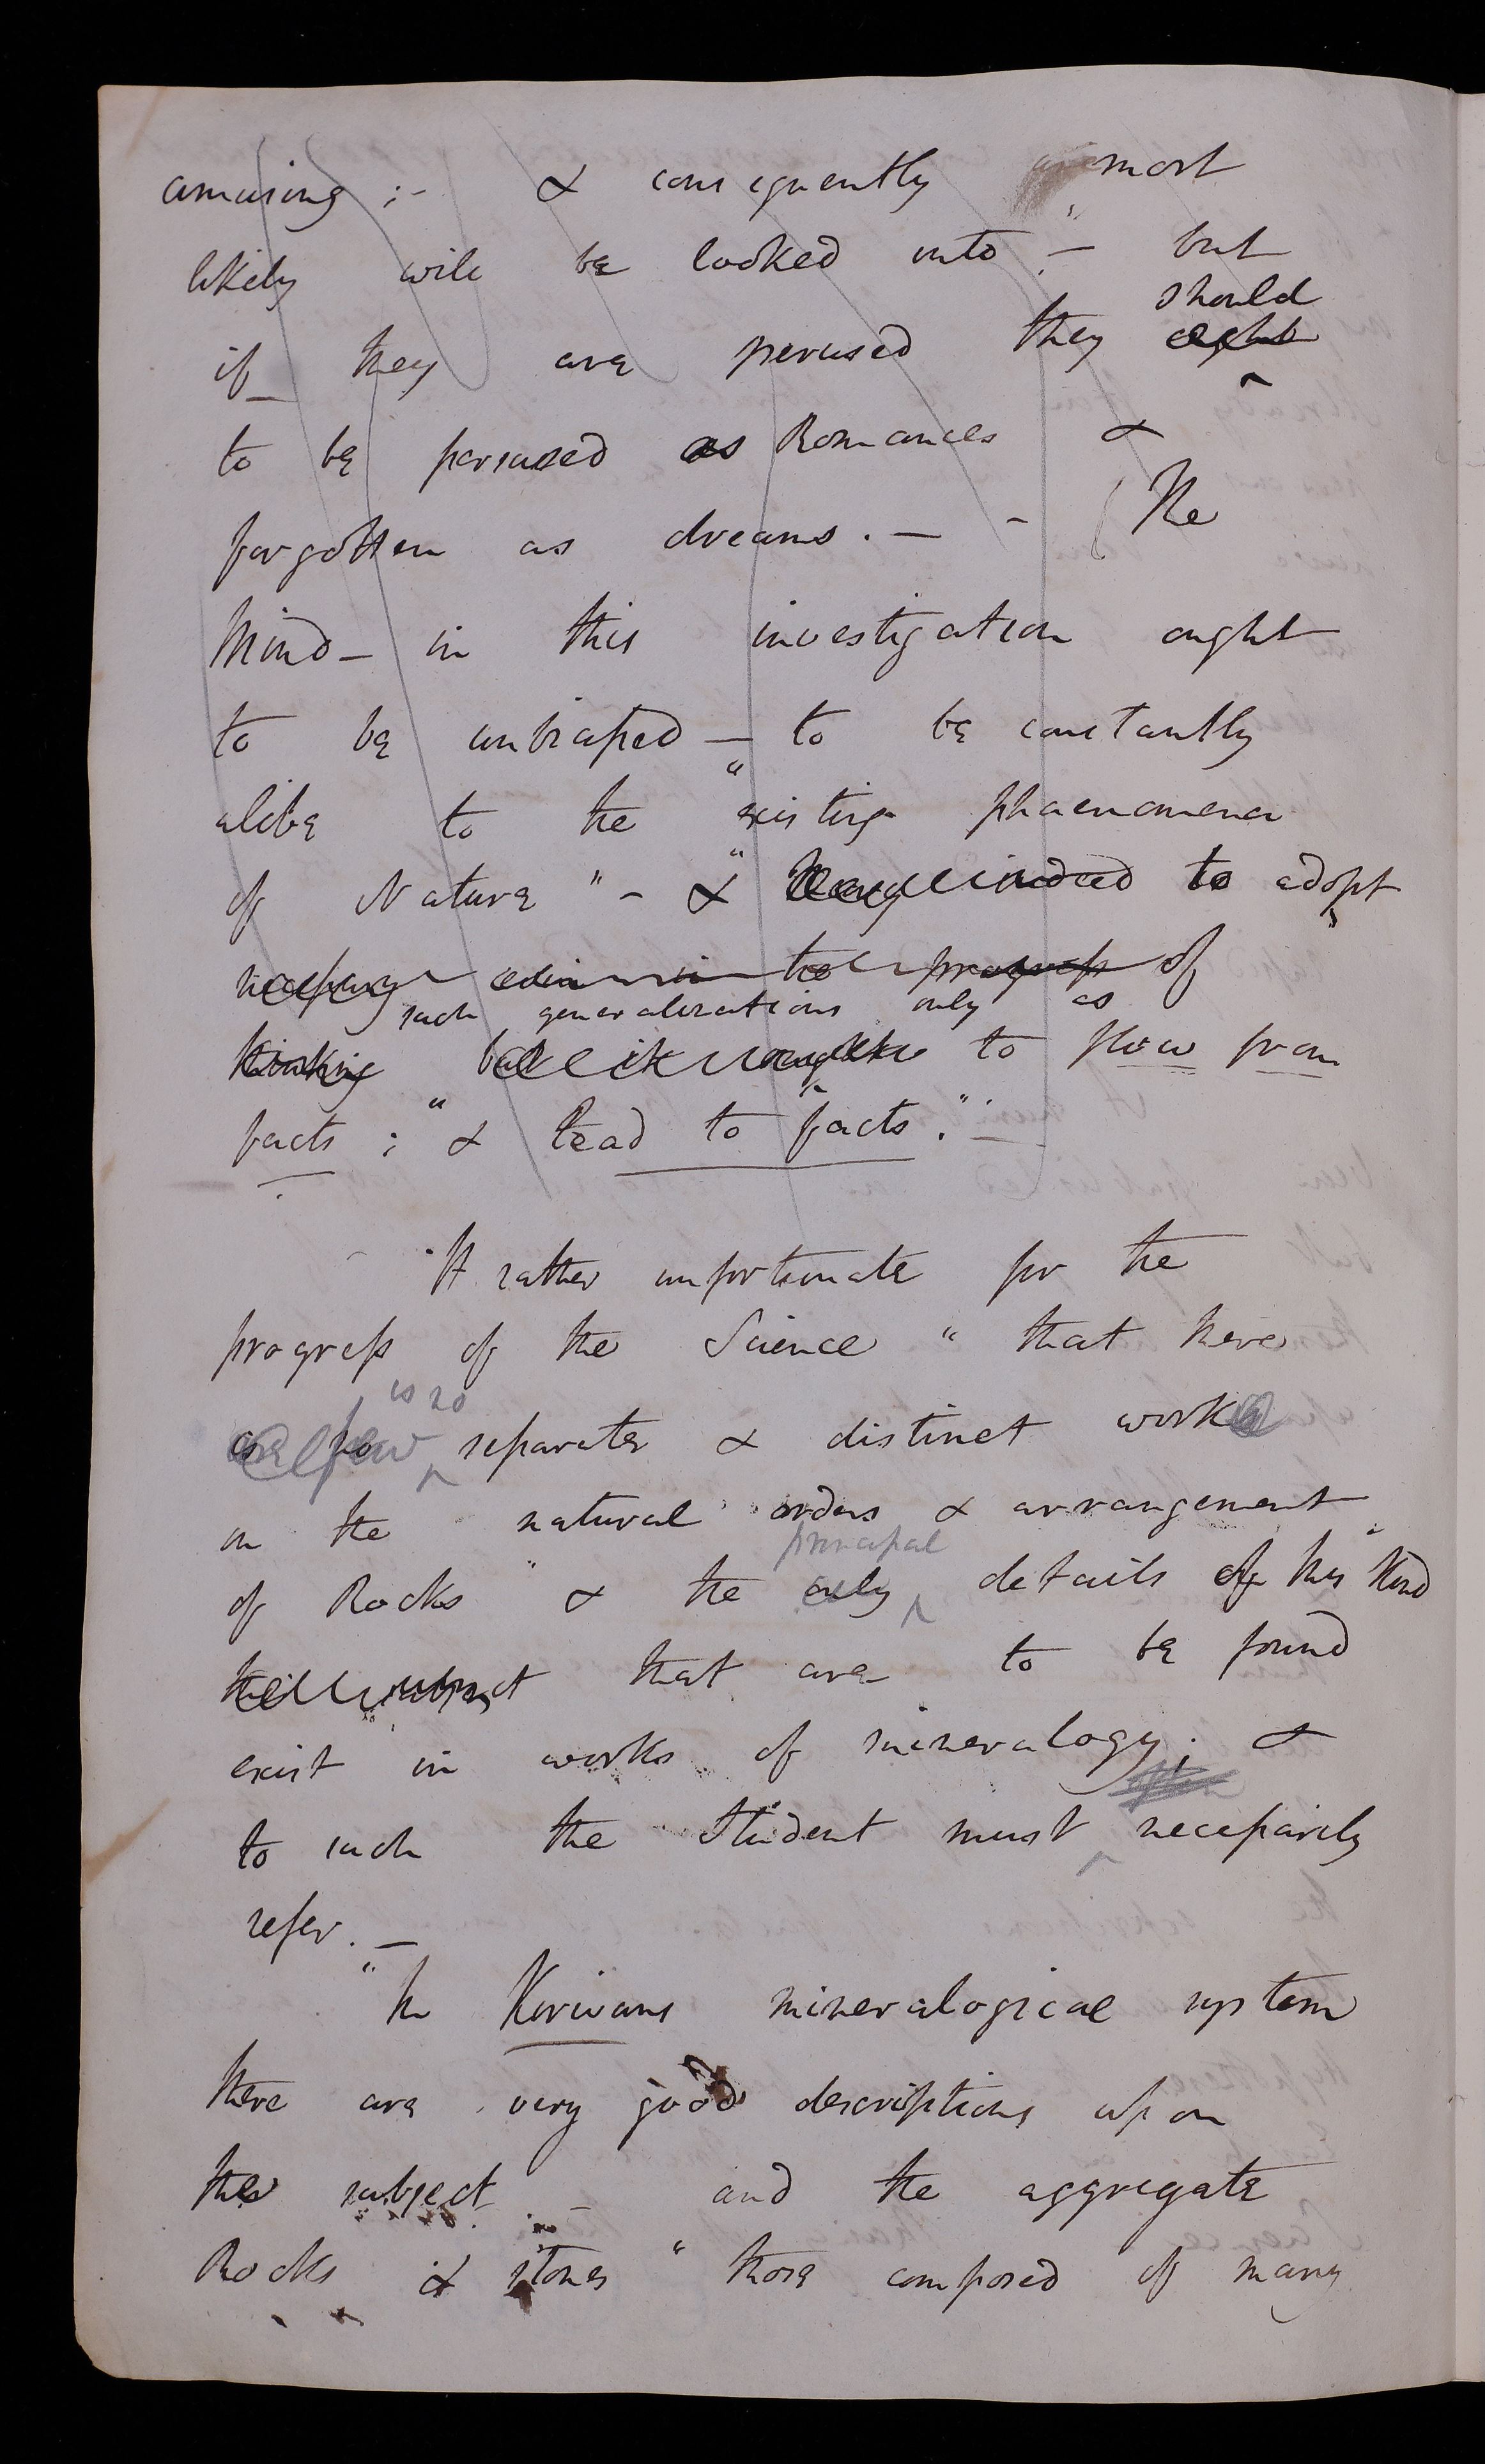 amusing ;- & consequently are most
likely will be looked into; - but
should
if they are perused they ought
to be perused as Romances &
forgotten as dreams. - - (The
Mind - in this investigation ought
to be unbiassed - to be constantly
alive to the "existing phaenomena
of Nature" - & "to adopt
necessary even in the progress of
such generalizations only as
thinking but it ought to flow from
facts ; "& lead to facts."
It rather unfortunate for the
progress of the Science "that there
is no
are few separate & distinct works
on the natural orders & arrangement
principal
of Rocks" & the only details of this kind
subject that are to be found
exist in works of mineralogy; &
to such the Student must necessarily
refer. -
"In Kirwans mineralogical system
there are very good descriptions upon
the subject - and the aggregate
Rocks & stones "those composed of many